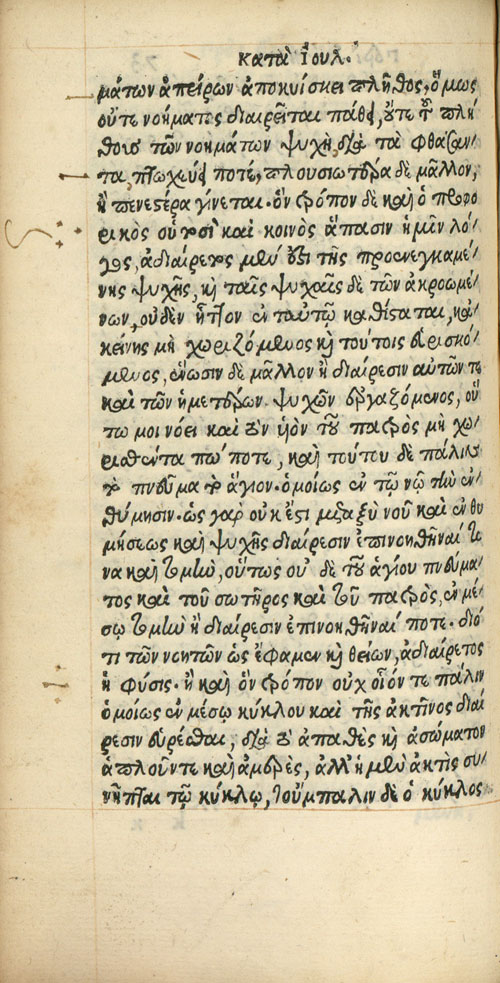 κατὰ ἰουλ.
μάτων ἀπείρων ἀποκυίσκει πλῆθος, ὅμως
οὔτε νοήματος διαιρεῖται πάθει, οὔτε τῷ πλή
θει τῶν νοημάτων ψυχὴ, διὰ τὰ φθάσαν
τα, πτωχεύει ποτέ, πλουσιωτέρα δὲ μᾶλλον,
ἢ πενεστέρα γίνεται. ὃν τρόπον δὲ καὶ ὁ προφο
ρικὸς οὗτοσὶ καὶ κοινὸς ἅπασιν ἡμῖν λό
γος, ἀδιαίρετος μὲν ἐπὶ τῆς προενεγκαμέ
νης ψυχῆς, κἢ ταῖς ψυχαῖς δὲ τῶν ἀκροωμέ
νων, οὐδὲν ἧττον ἐν ταυτῷ καθίσταται, κἀ
κείνης μὴ χωριζόμενος κἢ τούτοις εὑρισκό
μενος, ἕνωσιν δὲ μᾶλλον ἢ διαίρεσιν αὐτῶν τε
καὶ τῶν ἡμετέρων ψυχῶν ἐργαζόμενος, οὕ
τω μοι νόει καὶ τὸν υἱὸν τοῦ πατρὸς μὴ χω
ρισθέντα πώποτε, καὶ τούτου δὲ πάλιν
τὸ πνεῦμα τὸ ἅγιον. ὁμοίως ἐν τῷ νῷ τὴν ἐν
θύμησιν. ὡς γὰρ οὐκ ἔστι μεταξὺ νοῦ καὶ ἐνθυ
μήσεως καὶ ψυχῆς διαίρεσιν ἐπινοηθῆναί τι
να καὶ τομὴν, οὕτως οὐδὲ τοῦ ἁγίου πνεύμα
τος καὶ τοῦ σωτῆρος καὶ τοῦ πατρὸς, ἐν μέ
σῳ τομὴν ἢ διαίρεσιν ἐπινοηθῆναί ποτε. διό
τι τῶν νοητῶν ὡς ἔφαμεν κἢ θείων, ἀδιαίρετος
ἡ φύσις. ἢ καὶ ὃν τρόπον οὐχ οἷόν τε πάλιν
ὁμοίως ἐν μέσῳ κύκλου καὶ τῆς ἀκτῖνος διαί
ρεσιν εὑρέσθαι, διὰ τὸ ἀπαθὲς κἢ ἀσώματον
ἁπλοῦν τε καὶ ἀμερὲς, ἀλλ' ἡ μὲν ἀκτὶς συ
νῆπται τῷ κύκλῳ, τοὔμπαλιν δὲ ὁ κύκλος